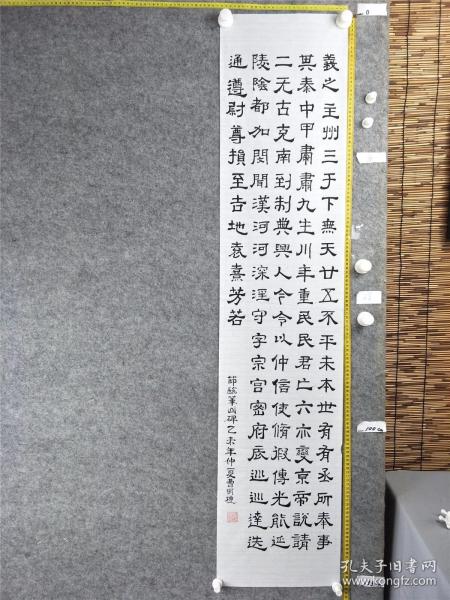 義之主州三于下無天廿五不平未本世有有丞所奉事
其秦中甲肅肅九生川年重民民君亡六亦奭京帝說請
二无古克南到制典興人令令以仲信使脩瑕傳光能延
陵陰都加閔聞漢河河深淫守字宗宮密府底巡巡達迭
通遵尉尊損至吉地袁熹芳若
節臨華山碑乙未年仲夏
孔夫子旧书网
kongfz.com